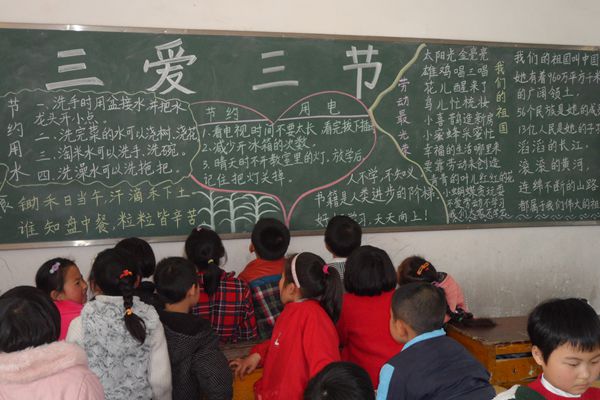 三爱三节
节约用水
一、洗手时用盆接水,并把水
龙头开小点。
二、洗完菜的水可以浇树、浇花
三、淘米水可以洗手、洗碗。
四、洗澡水可以洗拖把。
锄禾日当午,汗滴禾下土
谁知盘中餐,粒粒皆辛苦
节约用电
1.看电视时间不要太长,看完拔下插
2.减少开冰箱的次数。
3.晴天时不开教室里的灯,放学后
记住把灯关掉。
人不学,不知义
书籍是人类进步的阶梯
好好学习,天天向上!
劳动最光荣
太阳光金亮亮
雄鸡唱三唱
花儿醒来了
鸟儿忙梳妆
小喜鹊造新房
小蜜蜂采蜜忙
幸福的生活哪里来
要靠劳动来创造
我们的祖国
我们的祖国叫中国
她有着960万平方千米
的广阔领土。
56个民族是她的成员
13亿人民是她的子
滔滔的长江,
滚滚的黄河,
连绵不断的山路
都属于我们伟大的祖